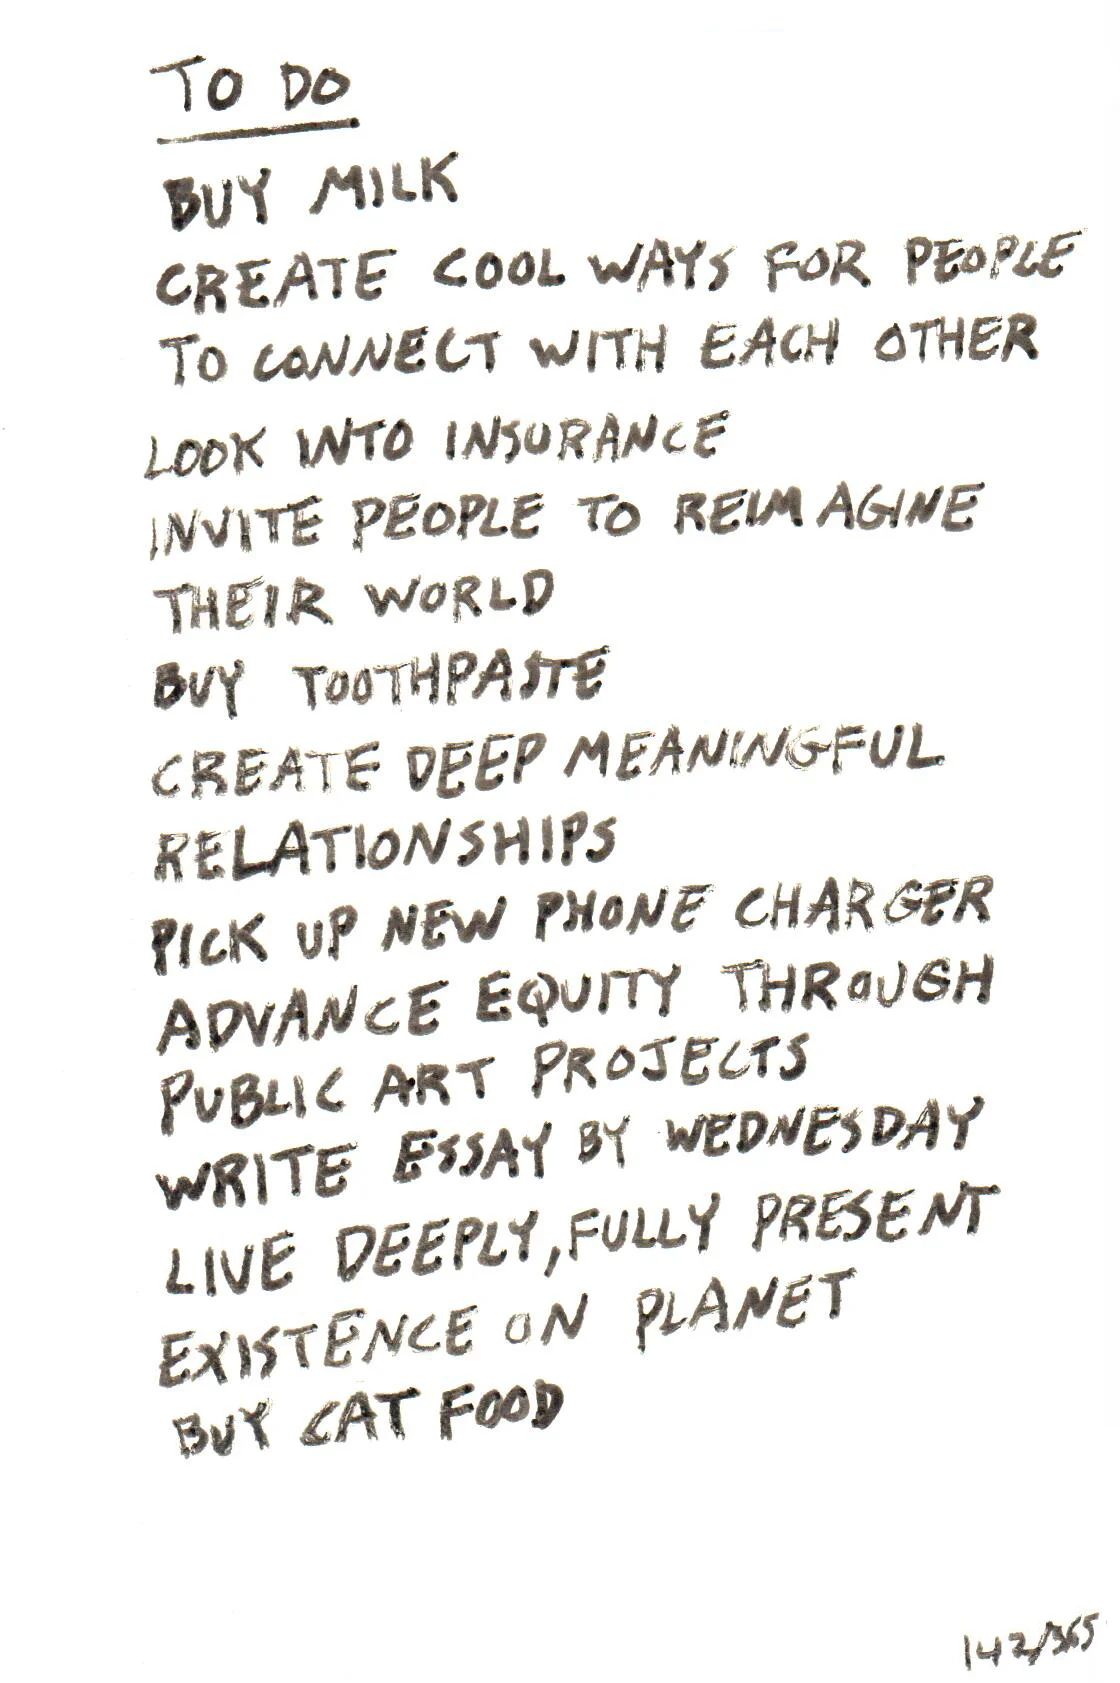 TO DO
BUY MILK
CREATE COOL WAYS FOR PEOPLE
TO CONNECT WITH EACH OTHER
LOOK INTO INSURANCE
INVITE PEOPLE TO REIMAGINE
THEIR WORLD
BUY TOOTHPASTE
CREATE DEEP MEANINGFUL
RELATIONSHIPS
PICK UP NEW PHONE CHARGER
ADVANCE EQUITY THROUGH
PUBLIC ART PROJECTS
WRITE ESSAY BY WEDNESDAY
LIVE DEEPLY, FULLY PRESENT
EXISTENCE ON PLANET
BUY CAT FOOD
142/365